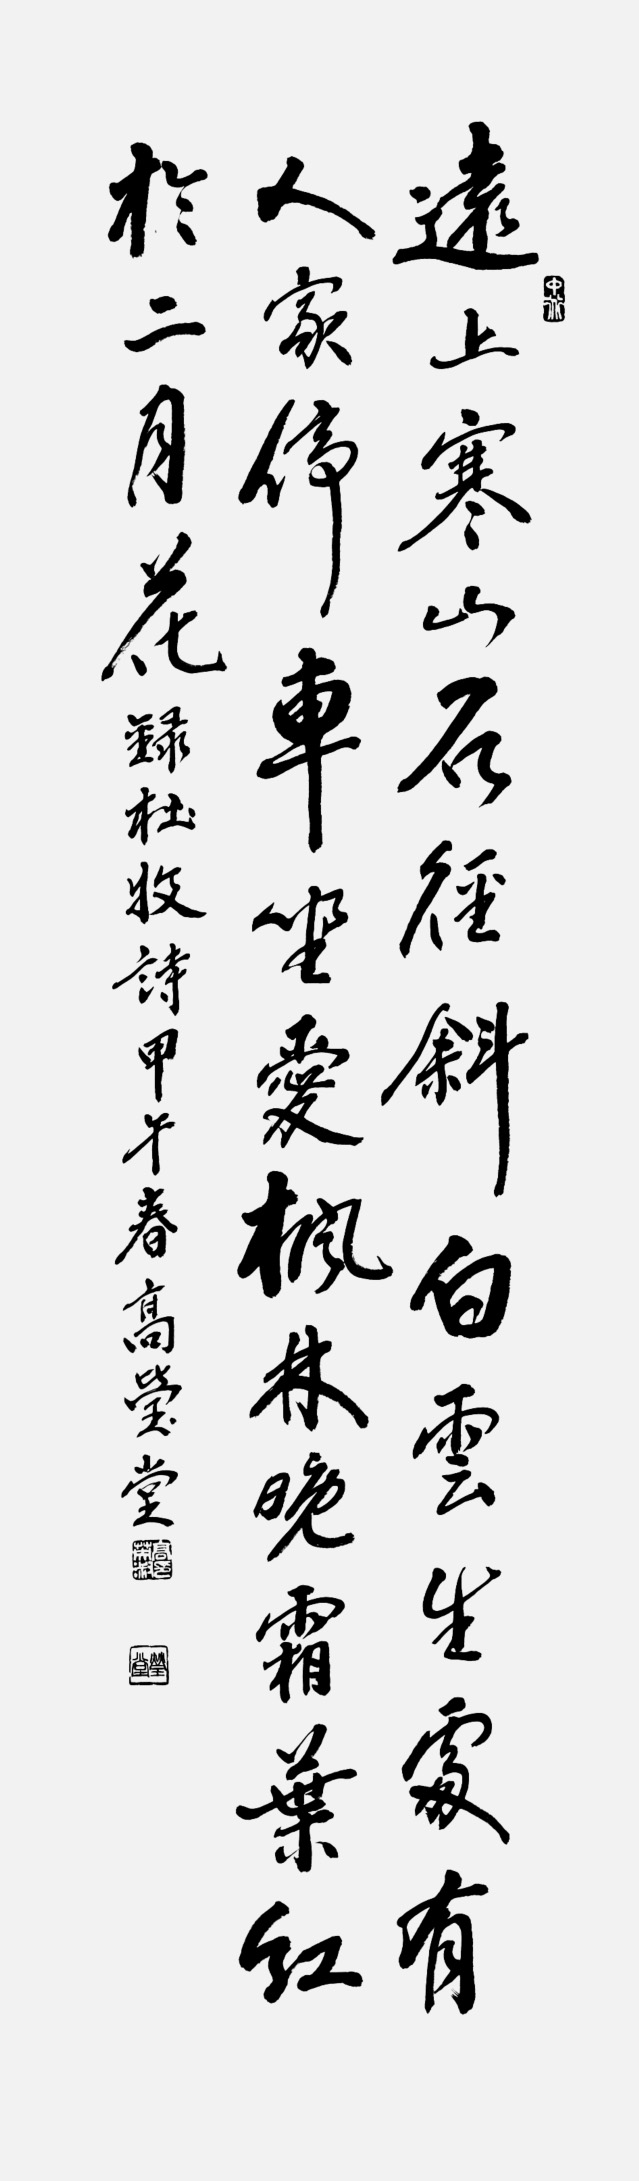 遠上寒山石徑斜白雲生處有
人家停車坐愛楓林晚霜葉紅
於二月花
錄杜牧詩甲午春高瑩堂
瑩堂